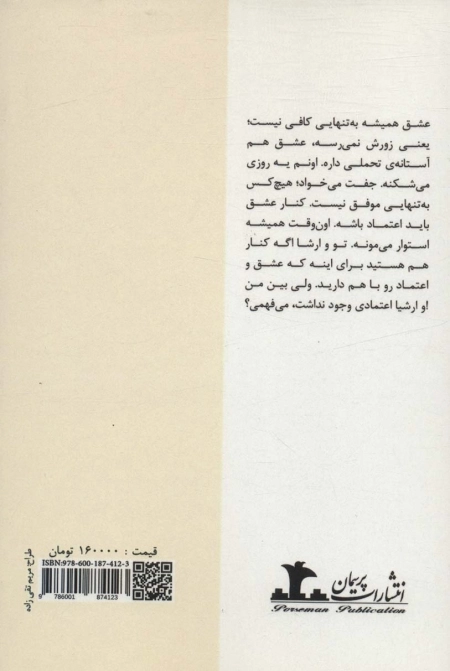 عشق همیشه به‌تنهایی کافی نیست؛
یعنی زورش نمی‌رسه، عشق هم
آستانه‌ی تحملی داره. اونم یه روزی
می‌شکنه. جفت می‌خواد؛ هیچ‌کس
به‌تنهایی موفق نیست. کنار عشق
باید اعتماد باشه. اون‌وقت همیشه
استوار می‌مونه. تو و ارشا اگه کنار
هم هستید برای اینه که عشق و
اعتماد رو با هم دارید. ولی بین من
او ارشیا اعتمادی وجود نداشت، می‌فهمی؟
قیمت : ۱۶۰۰۰۰ تومان
ISBN:978-600-187-412-3
9 786001 874123
طراح: مریم تقی زاده
انتشارات پرسمان
Porseman Publication